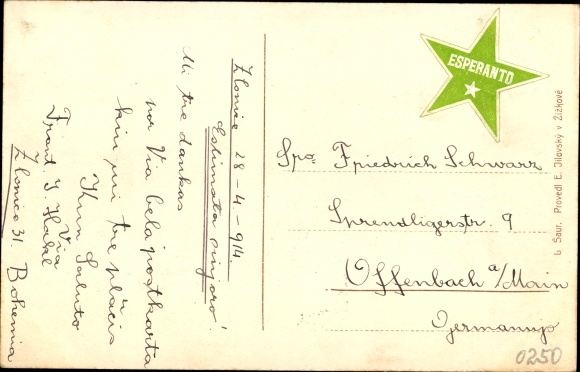 Zlonice 28-4-914.
Estimata sinjoro!
Mi tre dankas
por Via bela postkarta
kiu mi tre plaĉis
Kun Saluto
Via
Frant. J. Hakl
Zlonice 31. Bohemia
ESPERANTO
Spo Friedrich Schwarz
Sprendligerstr. 9
Offenbach a/Main
Germanujo
L. Saur, Provedl E. Jílovský v Žižkově
0250